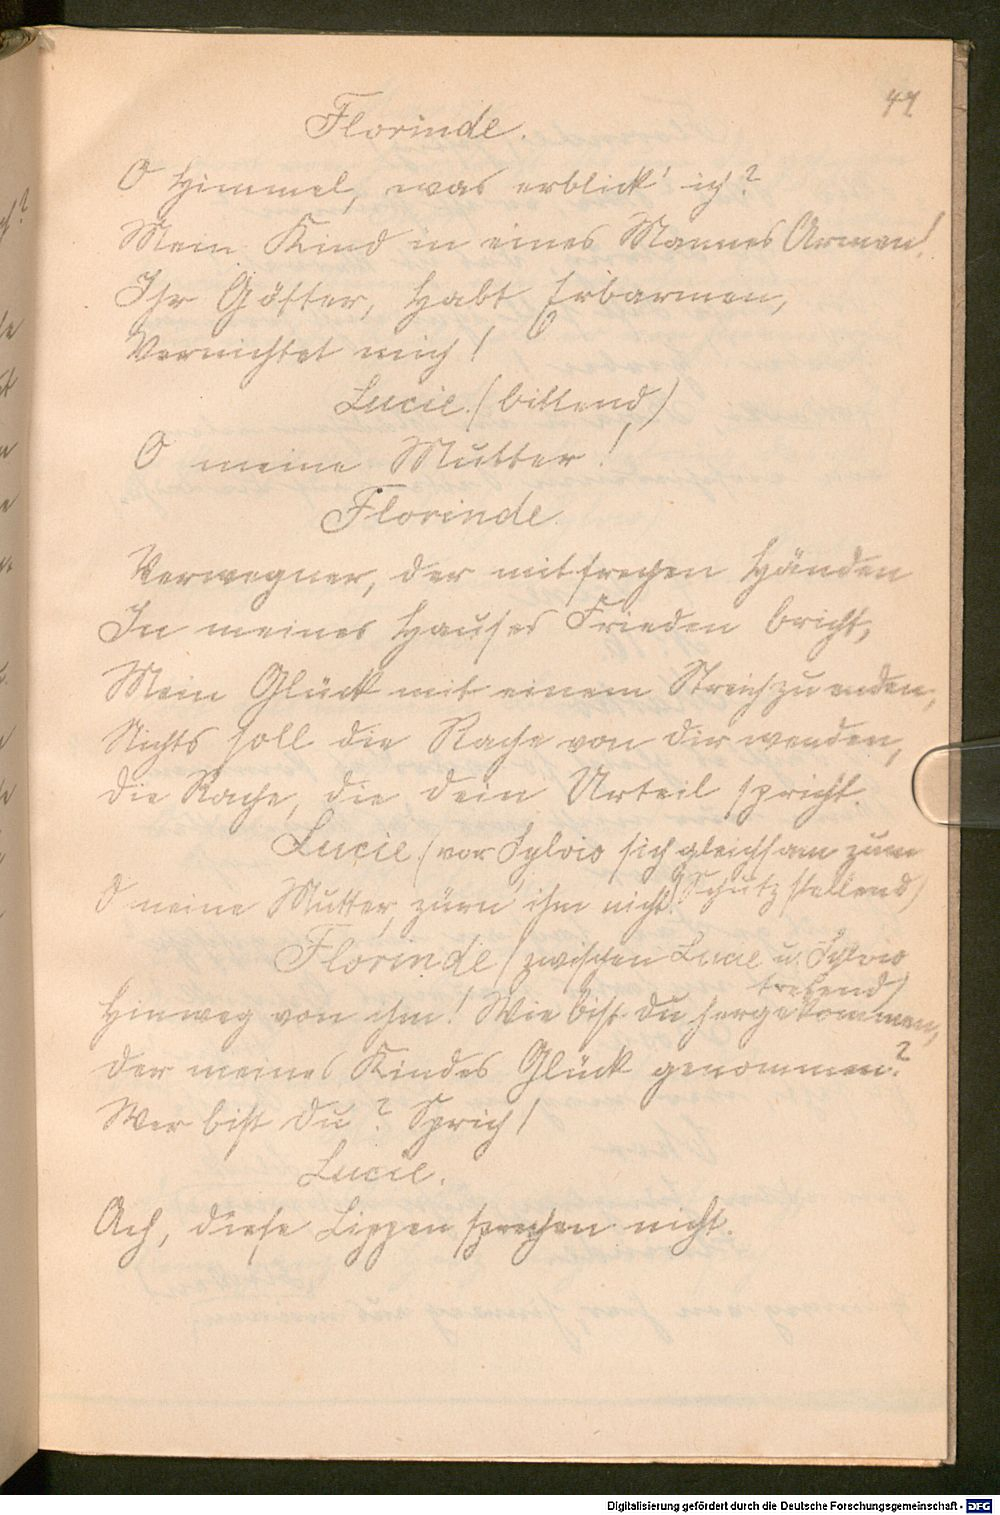 49
Florinde.
O Himmel, was erblick' ich?
Mein Kind in eines Mannes Armen!
Ihr Götter, habt Erbarmen,
Vernichtet mich!
Lucie. (bittend)
O meine Mutter!
Florinde.
Verwegner, der mit frechen Händen
In meines Hauses Frieden bricht,
Mein Glück mit einem Streich zu enden,
Nichts soll die Rache von dir wenden,
die Rache, die dein Urteil spricht.
Lucie. (vor Sylvio sich gleichsam zum
Schutz stellend)
O meine Mutter, zürn' ihm nicht!
Florinde (zwischen Lucie u. Sylvio
tretend)
Hinweg von ihm! Wie bist du hergekommen,
der meines Kindes Glück genommen?
Wer bist du? Sprich!
Lucie.
Ach, diese Lippen sprechen nicht.
Digitalisierung gefördert durch die Deutsche Forschungsgemeinschaft - DFG